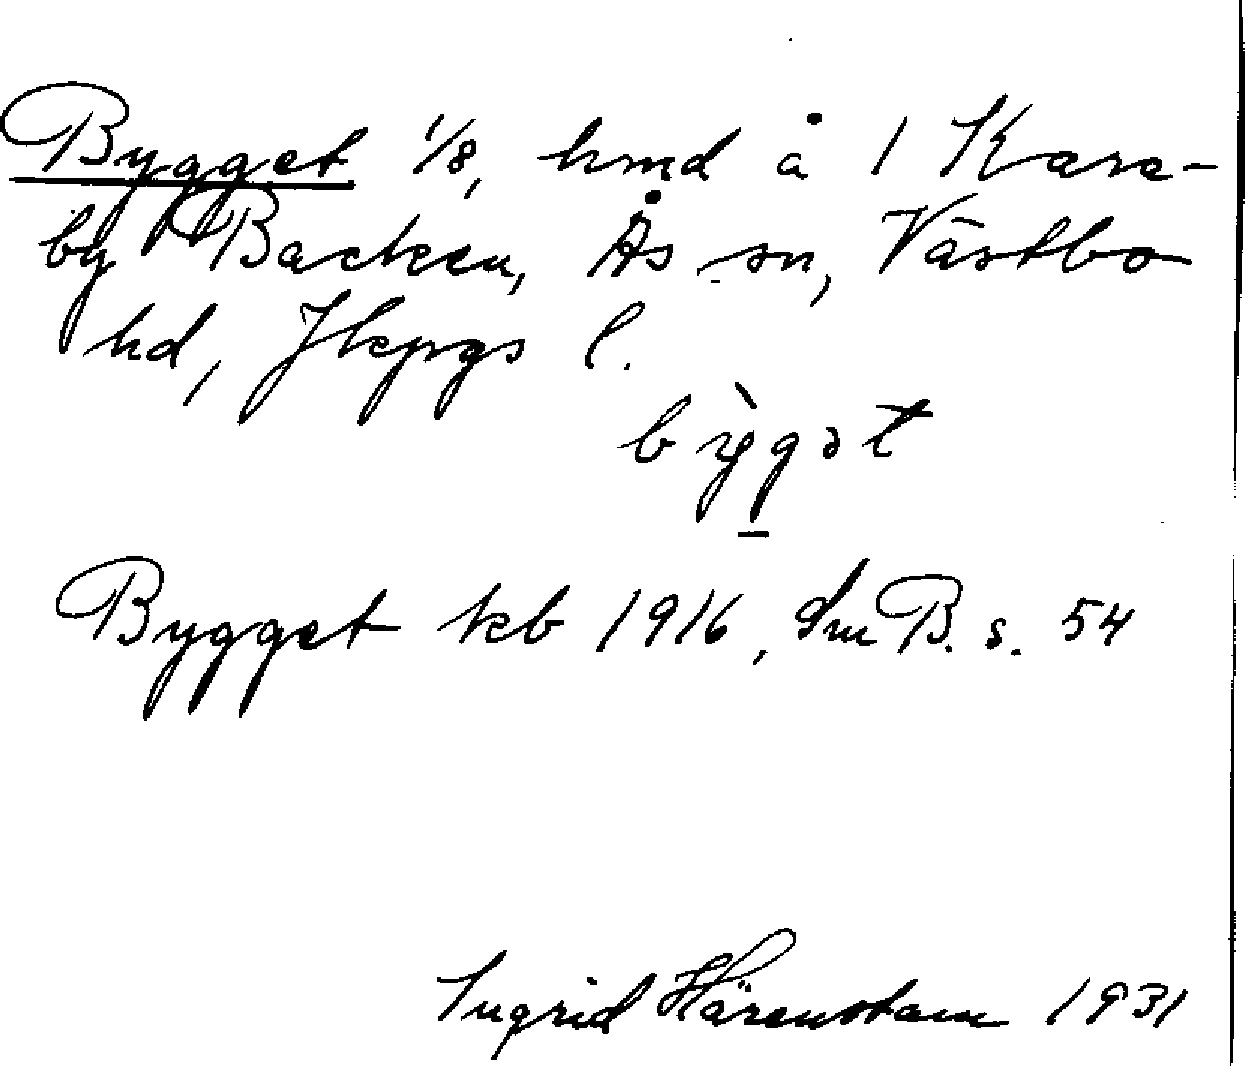 Bygget 1/8, hmd å 1 Kare-
by Backen, Ås sn, Västbo
hd, Jkpgs l.
bỳg̲ət
Bygget kb 1916, SmB. s. 54
Ingrid Härenstam 1931